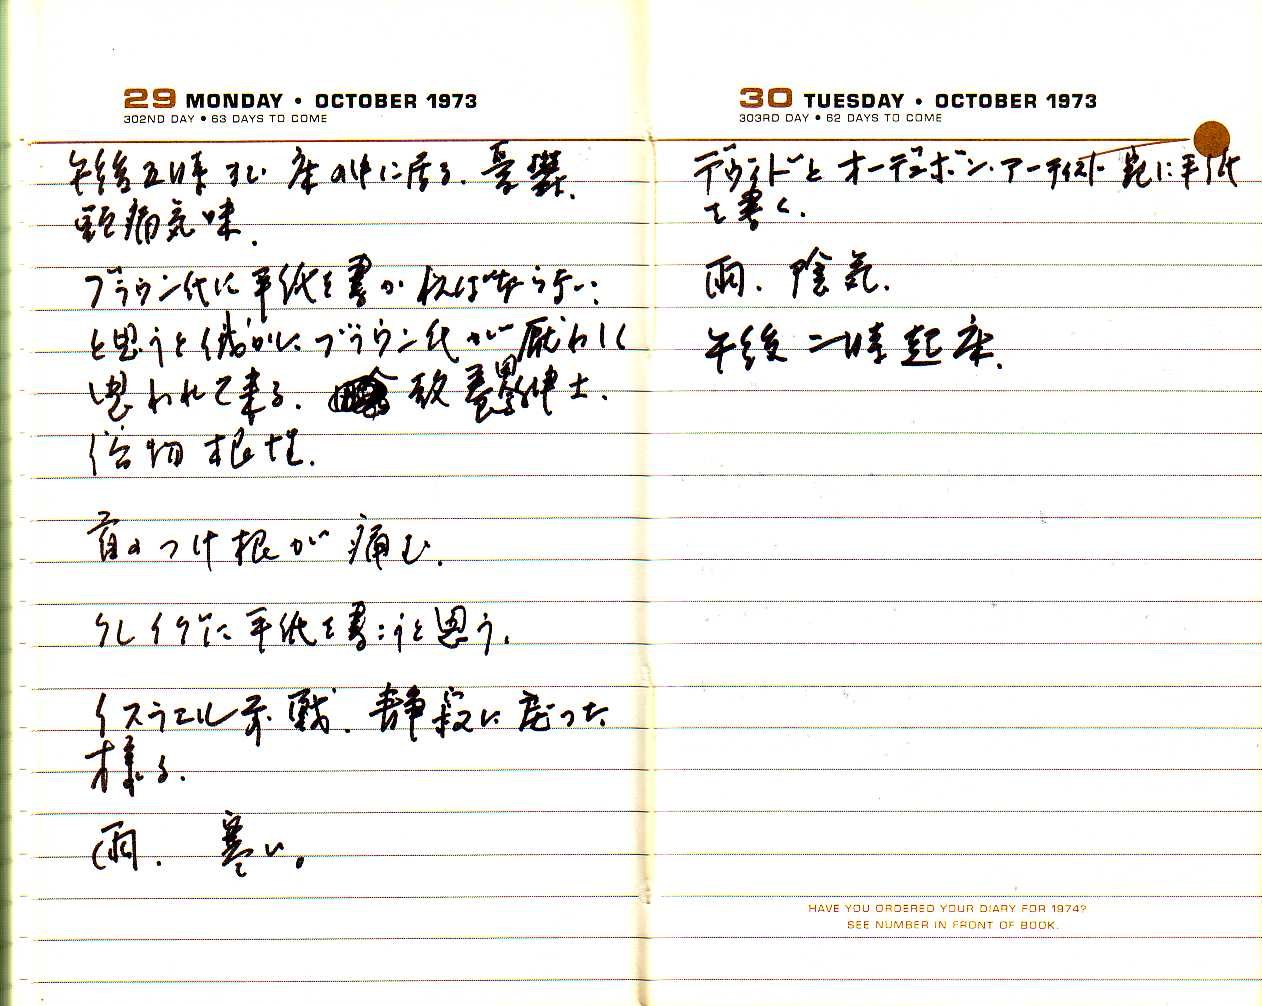 29 MONDAY • OCTOBER 1973
302ND DAY • 63 DAYS TO COME
午後五時まで床の中に居る. 憂鬱.
頭痛気味.
ブラウン氏に手紙を書かねばならない.
と思うと俄かにブラウン氏が厭わしく
思われて来る. 教養男紳士.
俗物根性.
首のつけ根が痛む.
クレイグに手紙を書こうと思う.
イスラエル 戦. 静寂に戻った
様る.
雨. 寒い。
30 TUESDAY • OCTOBER 1973
303RD DAY • 62 DAYS TO COME
デヴィドとオーデュボン・アーティスト に手紙
を書く.
雨. 陰気.
午後二時起床.
HAVE YOU ORDERED YOUR DIARY FOR 1974?
SEE NUMBER IN FRONT OF BOOK.